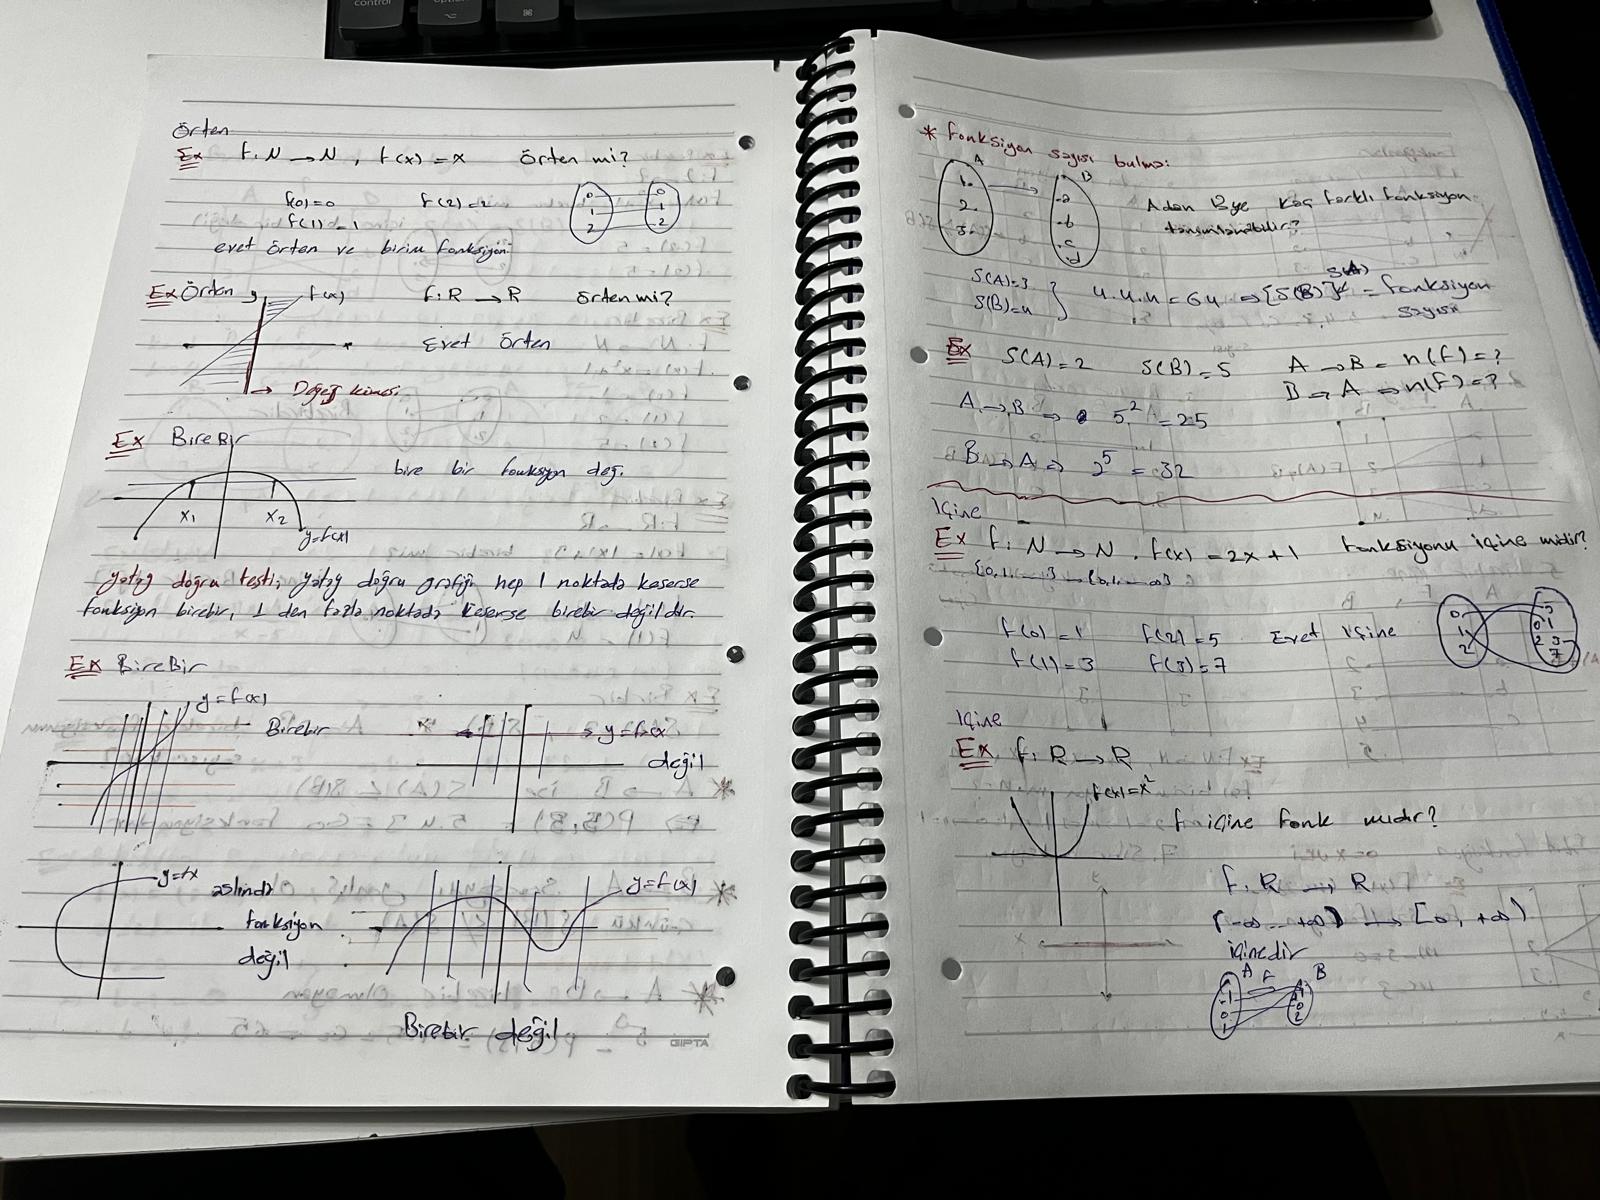 Örten
Ex f: N → N, f(x) = x Örten mi?
f(0) = 0 f(2) = 2
f(1) = 1
evet örten ve birim fonksiyon
0 1 2 0 1 2
Ex Örten f(x) f: R → R örten mi?
Evet örten
→ Değer kümesi
Ex BireBir
bire bir fonksiyon değ.
x₁ x₂ y=f(x)
yatay doğru testi; yatay doğru grafiği hep 1 noktada keserse
fonksiyon birebir, 1 den fazla noktada keserse birebir değildir.
Ex BireBir
y=f(x) Birebir y=f(x) değil
y=fx aslında fonksiyon değil y=f(x)
Birebir değil
GIPTA
* fonksiyon sayısı bulma:
A B
1. 2. 3. .a .b .c .d
Adan B'ye kaç farklı fonksiyon
tanımlanabilir?
S(A)=3
S(B)=4 } 4.4.4 = 64 ⇒ [S(B)]^S(A) = fonksiyon
sayısı
Ex S(A)=2 S(B)=5 A → B = n(f)=?
B → A ⇒ n(f)=?
A → B ⇒ 5² = 25
B → A ⇒ 2⁵ = 32
içine
Ex f: N → N . f(x) = 2x+1 fonksiyonu içine midir?
f(0) = 1 f(2) = 5 Evet içine
f(1) = 3 f(3) = 7
içine
Ex f: R → R
f(x)=x²
f içine fonk mıdır?
f: R → R
(-∞ +∞) → [0, +∞)
içinedir
A f B